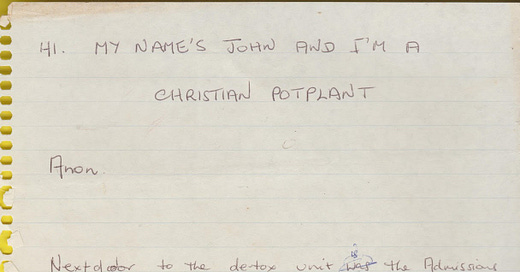 HI. MY NAME'S JOHN AND I'M A
CHRISTIAN POTPLANT
Anon.
is
Nextdoor to the detox unit was the Admissions